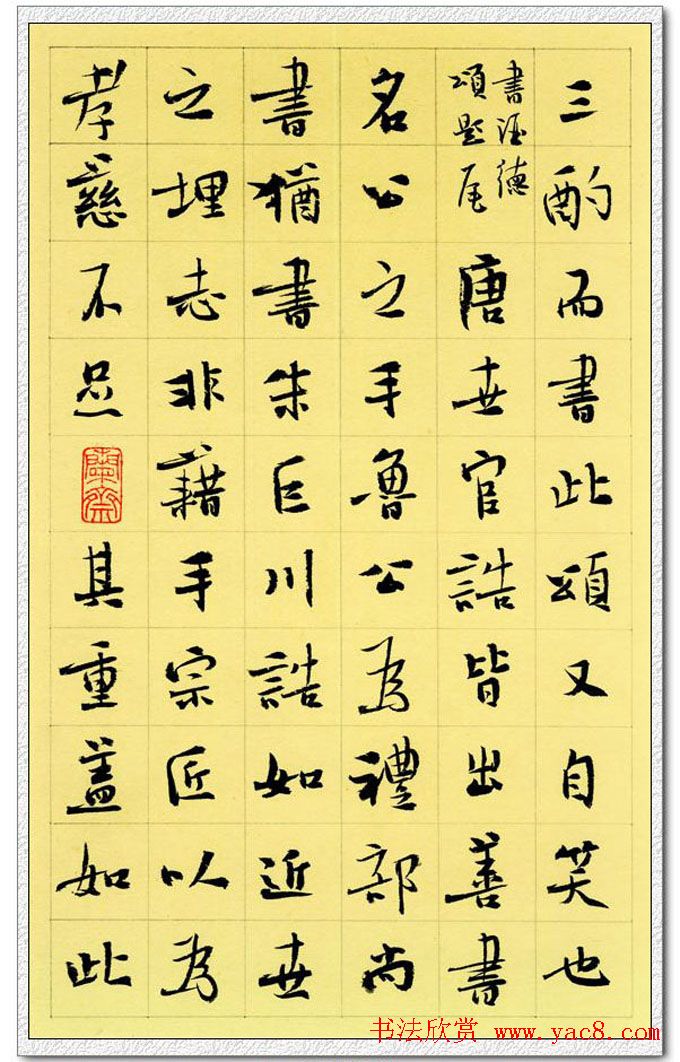 三酌而書此頌又自笑也
書酒德
頌題尾
唐世官誥皆出善書
名公之手魯公為禮部尚
書猶書朱巨川誥如近世
之埋志非藉手宗匠以為
孝慈不足其重蓋如此
书法欣赏 www.yac8.com